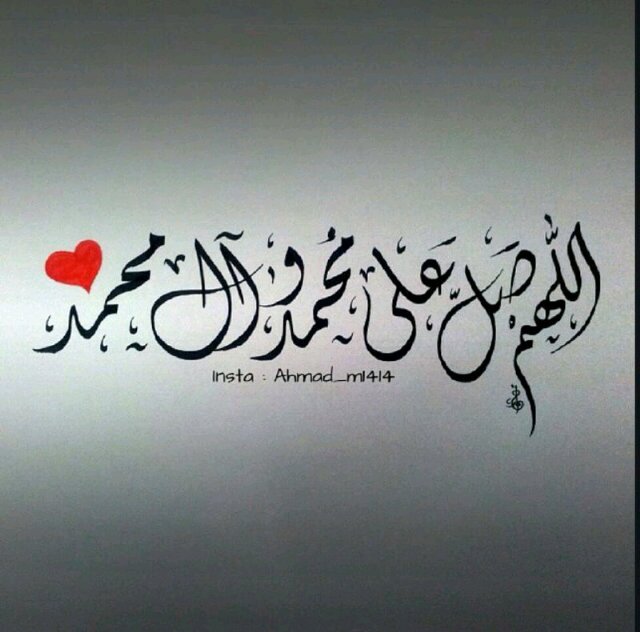 اللّهم صلِّ على محمد وآل محمد
Insta : Ahmad_m1414